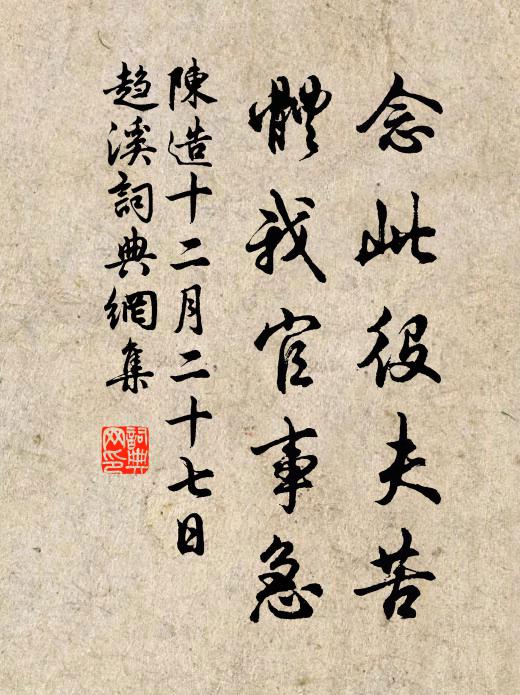 念此役夫苦
體我官事急
陳造十二月二十七日
趋溪詞典網集
詞典网印